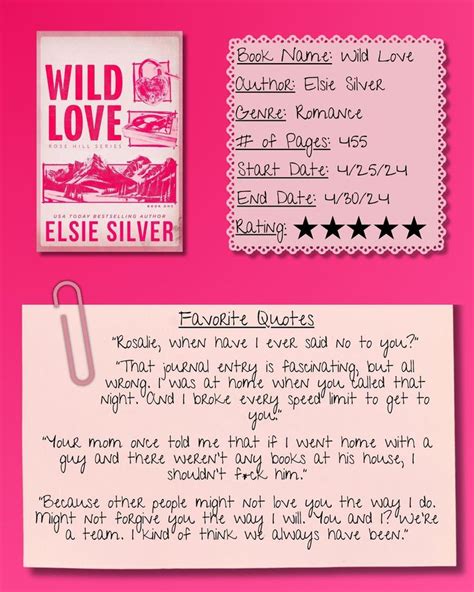 WILD
LOVE
ROSE HILL SERIES
BOOK ONE
USA TODAY BESTSELLING AUTHOR
ELSIE SILVER
Book Name: Wild Love
Author: Elsie Silver
Genre: Romance
# of Pages: 455
Start Date: 4/25/24
End Date: 4/30/24
Rating: ★★★★★
Favorite Quotes
"Rosalie, when have I ever said no to you?"
"That journal entry is fascinating, but all
wrong. I was at home when you called that
night. And I broke every speed limit to get to
you."
"Your mom once told me that if I went home with a
guy and there weren't any books at his house, I
shouldn't f*ck him."
"Because other people might not love you the way I do.
Might not forgive you the way I will. You and I? We're
a team. I kind of think we always have been."